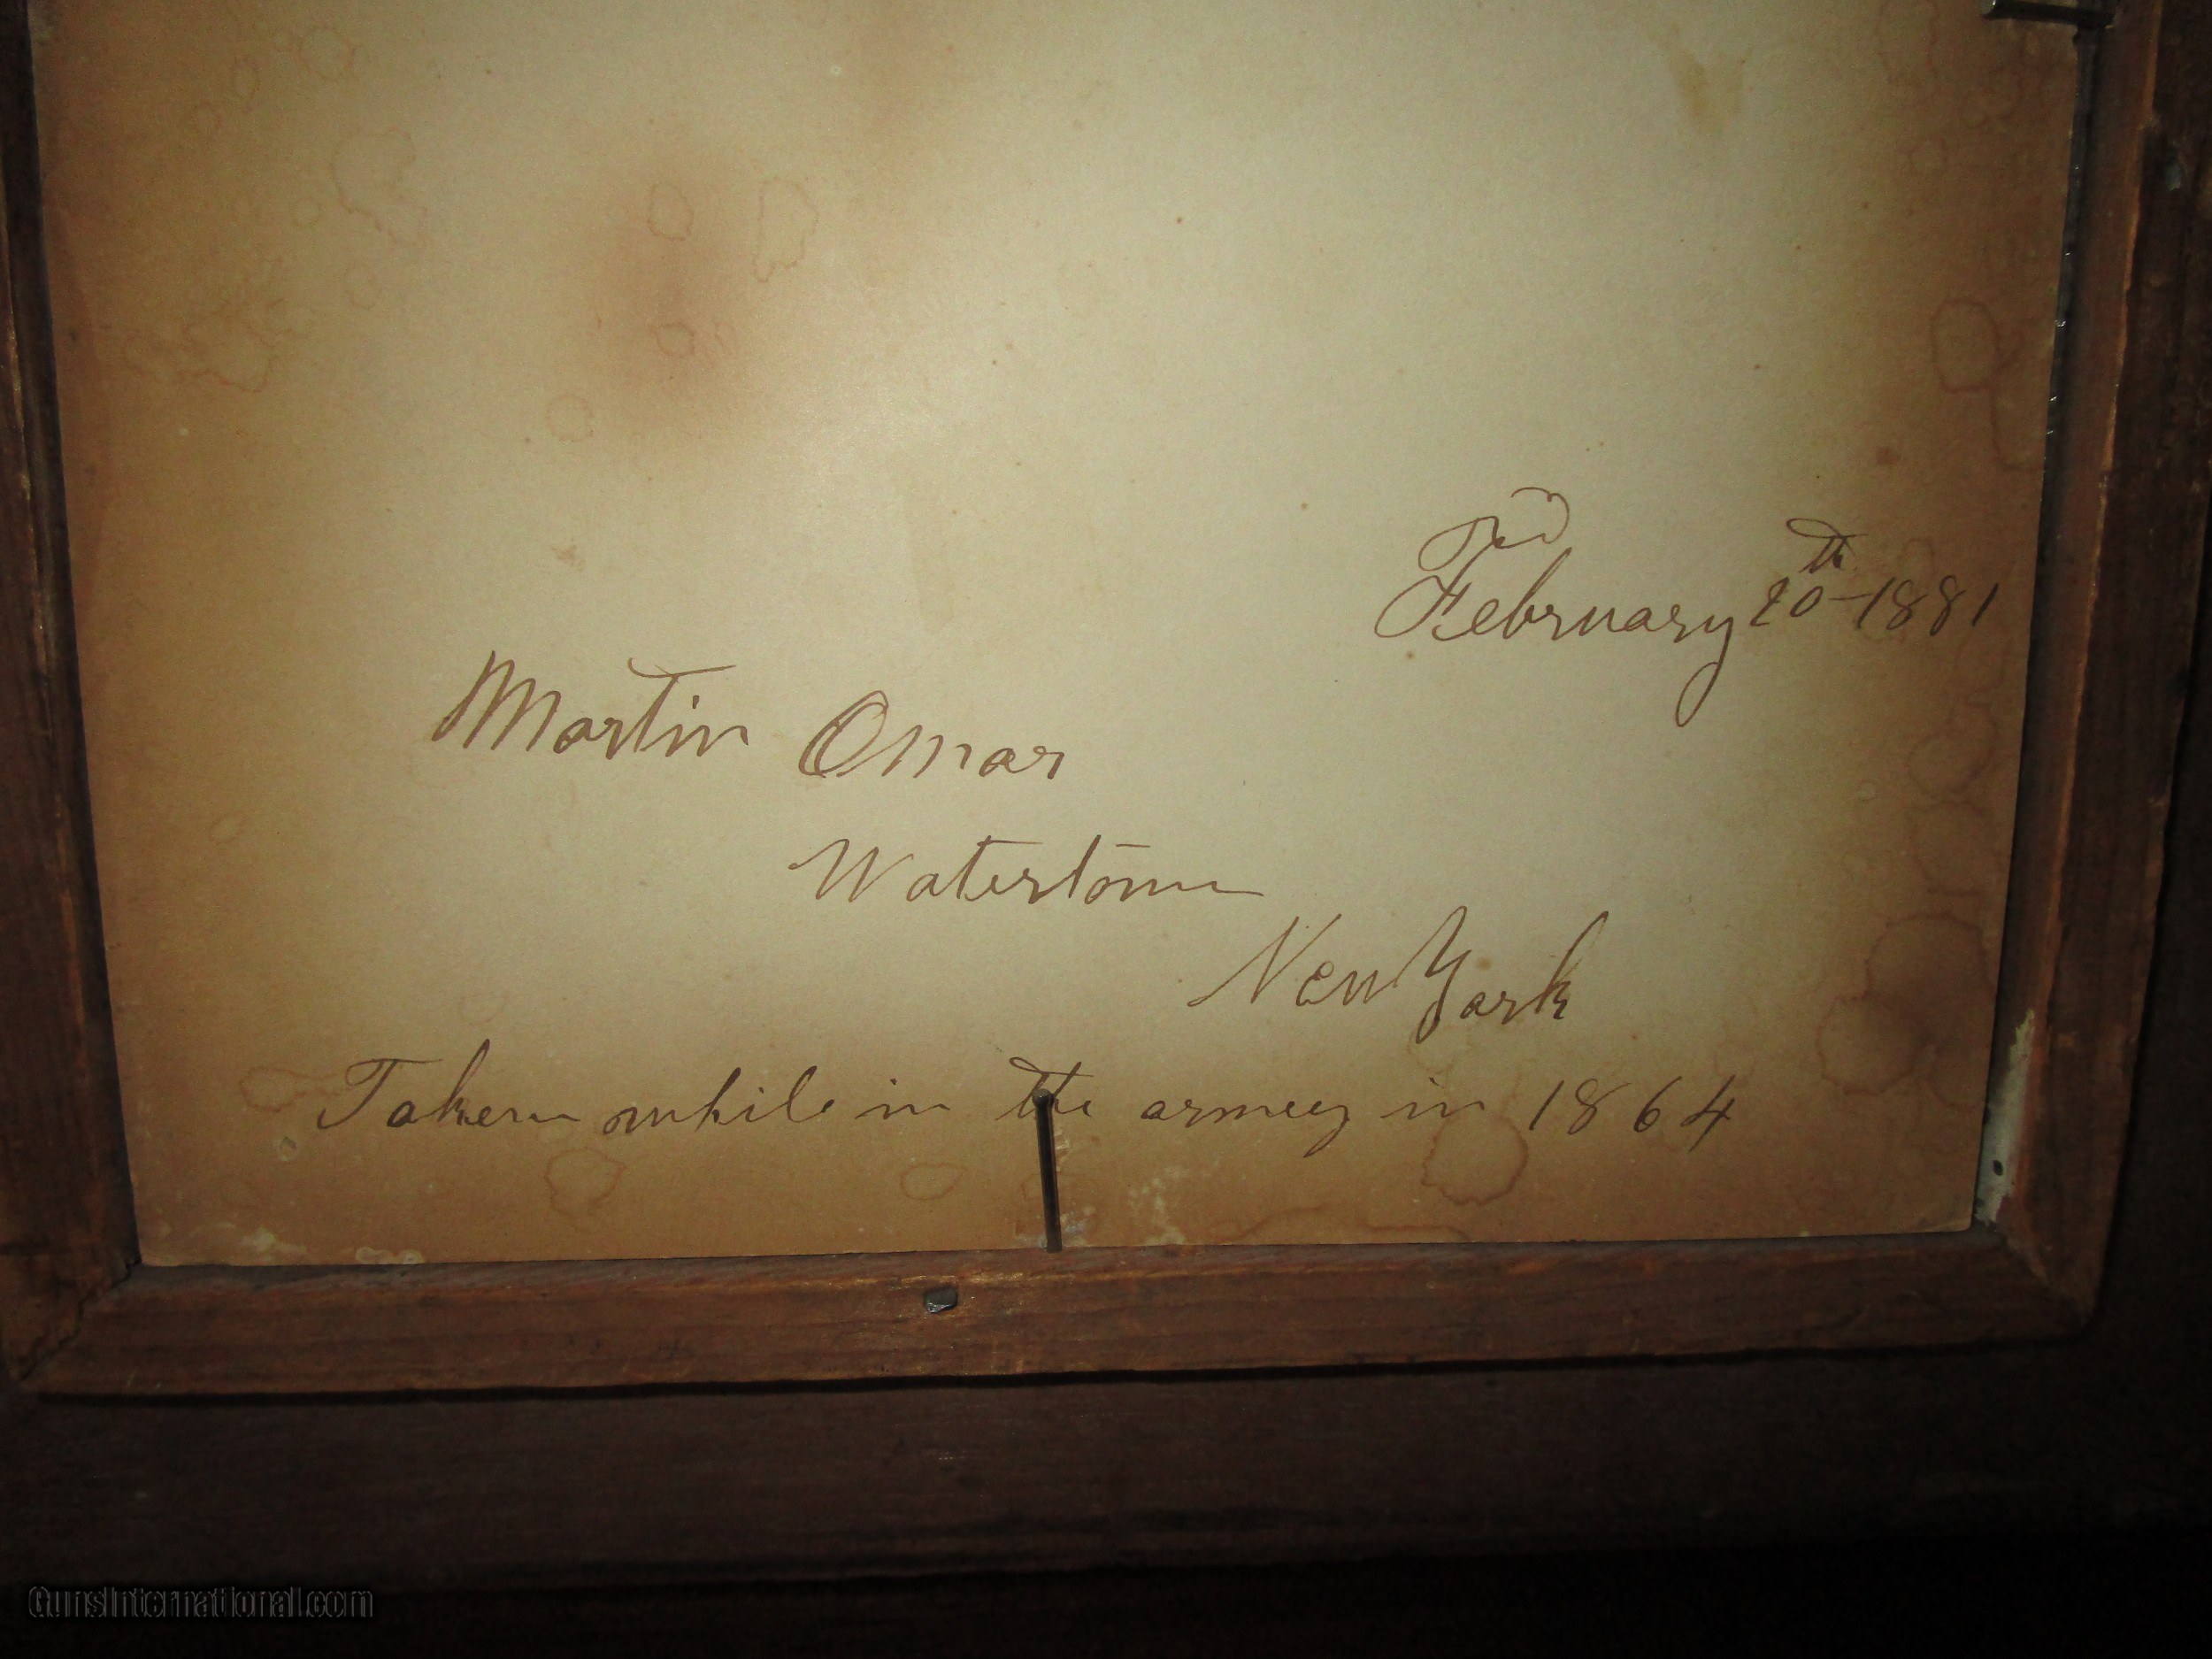 February 20th-1881
Martin Omar
Watertown
New York
Taken while in the armey in 1864
GunsInternational.com